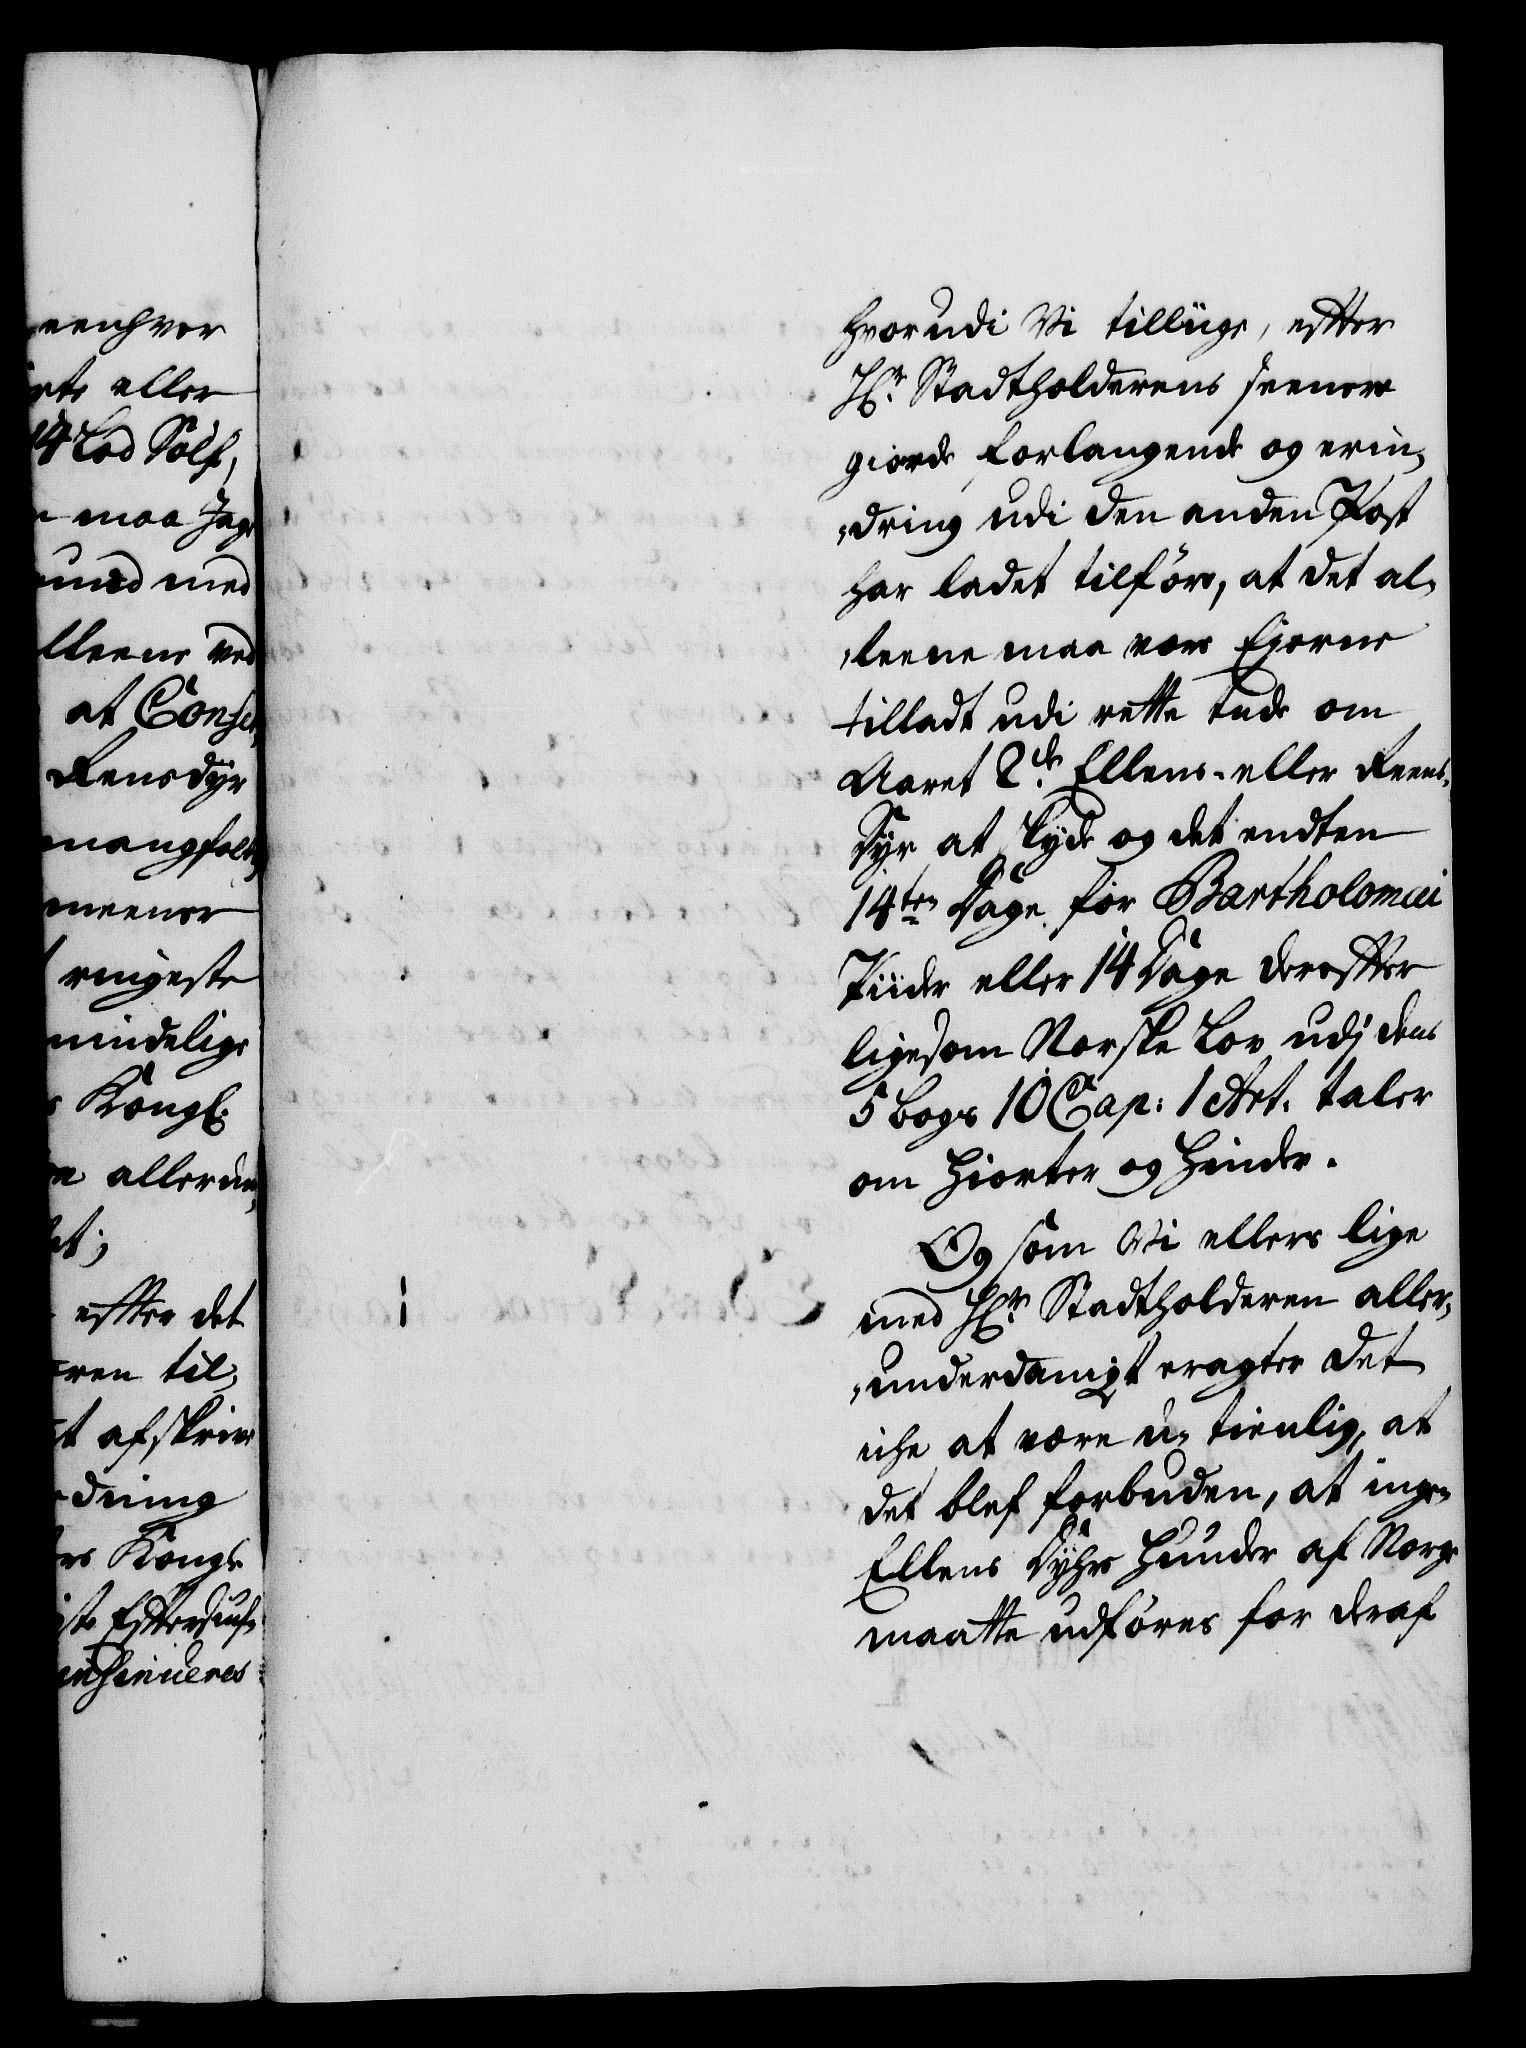 eenhver
rte eller
14 Lod Sølf,
maa Jage
mund med
lleene ved
at Conser
Rensdÿr
mangfoldi
meener
ringeste
mindelige
Kongl:
allerun,
et;
effter det
ren til,
t afskrive
dning
rs Kongl:
iste Effterdiuf
hvorudi Vi tilliige, effter
Hr: Stadtholderens seenere
giorde forlangende og erin,
,dring udi den anden Post
har ladet tilføre, at det al,
,leene maa være Ejerne
tilladt udi rette tide om
Aaret 2de Ellens- eller Reens-
Dÿr at skÿde og det endten
14ten Dage før Bartholomæi
Tiider eller 14 Dage dereffter
ligesom Norske Lov udj dens
5 bogs 10 Cap: 1 Art. taler
om Hiorter og Hinder.
Og som Vi ellers lige
med Hr: Stadtholderen aller,
,underdanigt eragter det
iche at være u, tienlig, at
det blef forbuden, at ingen
Ellens Dÿhrs Hunder af Norge
maatte udføres for deraf